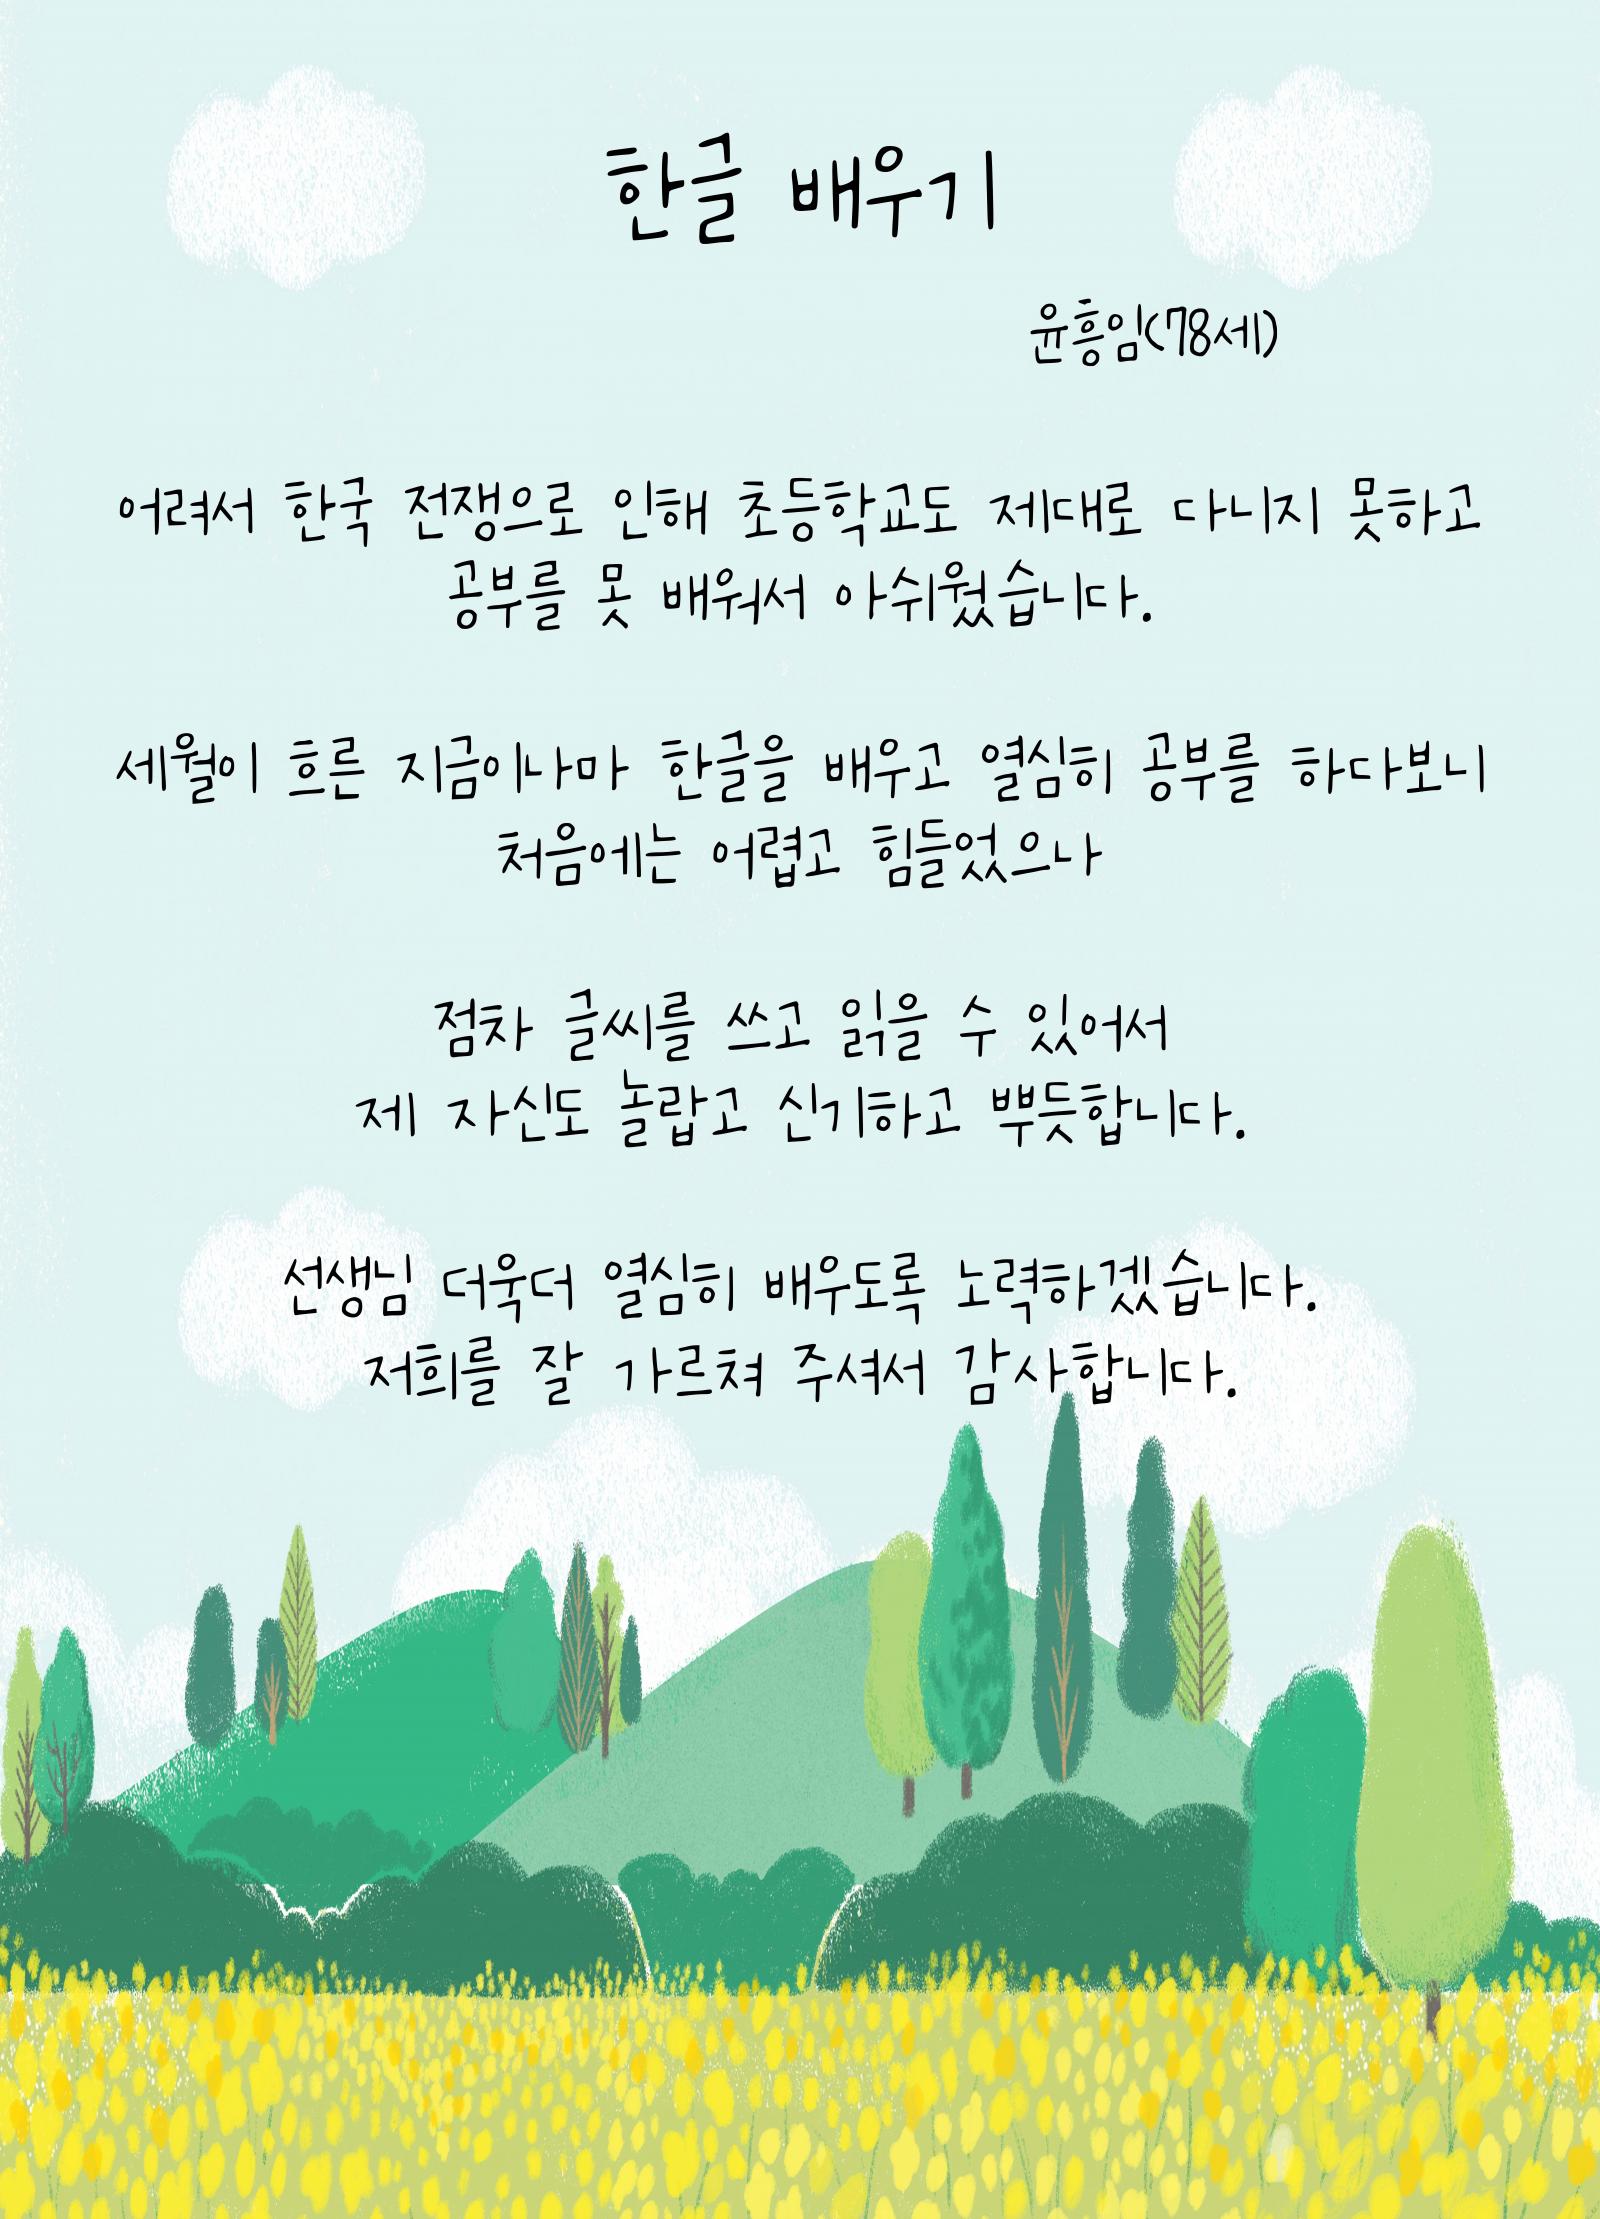 한글 배우기
윤흥임(78세)
어려서 한국 전쟁으로 인해 초등학교도 제대로 다니지 못하고
공부를 못 배워서 아쉬웠습니다.
세월이 흐른 지금이나마 한글을 배우고 열심히 공부를 하다보니
처음에는 어렵고 힘들었으나
점차 글씨를 쓰고 읽을 수 있어서
제 자신도 놀랍고 신기하고 뿌듯합니다.
선생님 더욱더 열심히 배우도록 노력하겠습니다.
저희를 잘 가르쳐 주셔서 감사합니다.